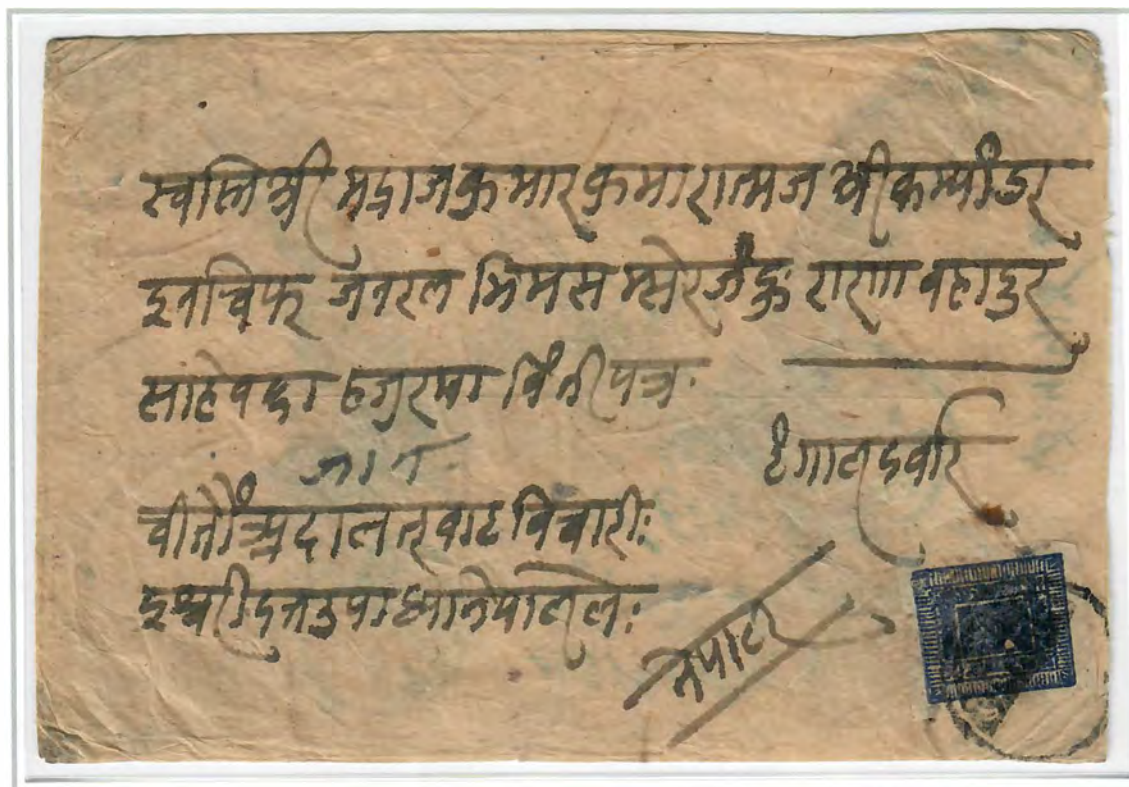 स्वस्ति श्री मद्राजकुमारकुमारात्मज श्री कम्यांडर
इनचिफ् जनरल भिमसम्सेरजंङ्ग राराणा वहादुर
साहेवका हजुरमा विंतीपत्र
टंगालदर्वार
चीतौंन अदालतवाट विचारी
इश्वरीदत्तउपाध्यानेपालले
नेपाल